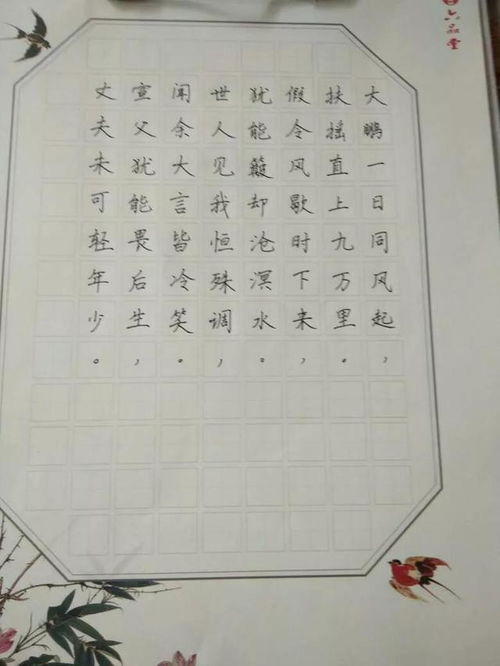 大鹏一日同风起，
扶摇直上九万里。
假令风歇时下来，
犹能簸却沧溟水。
世人见我恒殊调，
闻余大言皆冷笑。
宣父犹能畏后生，
丈夫未可轻年少。
六品堂